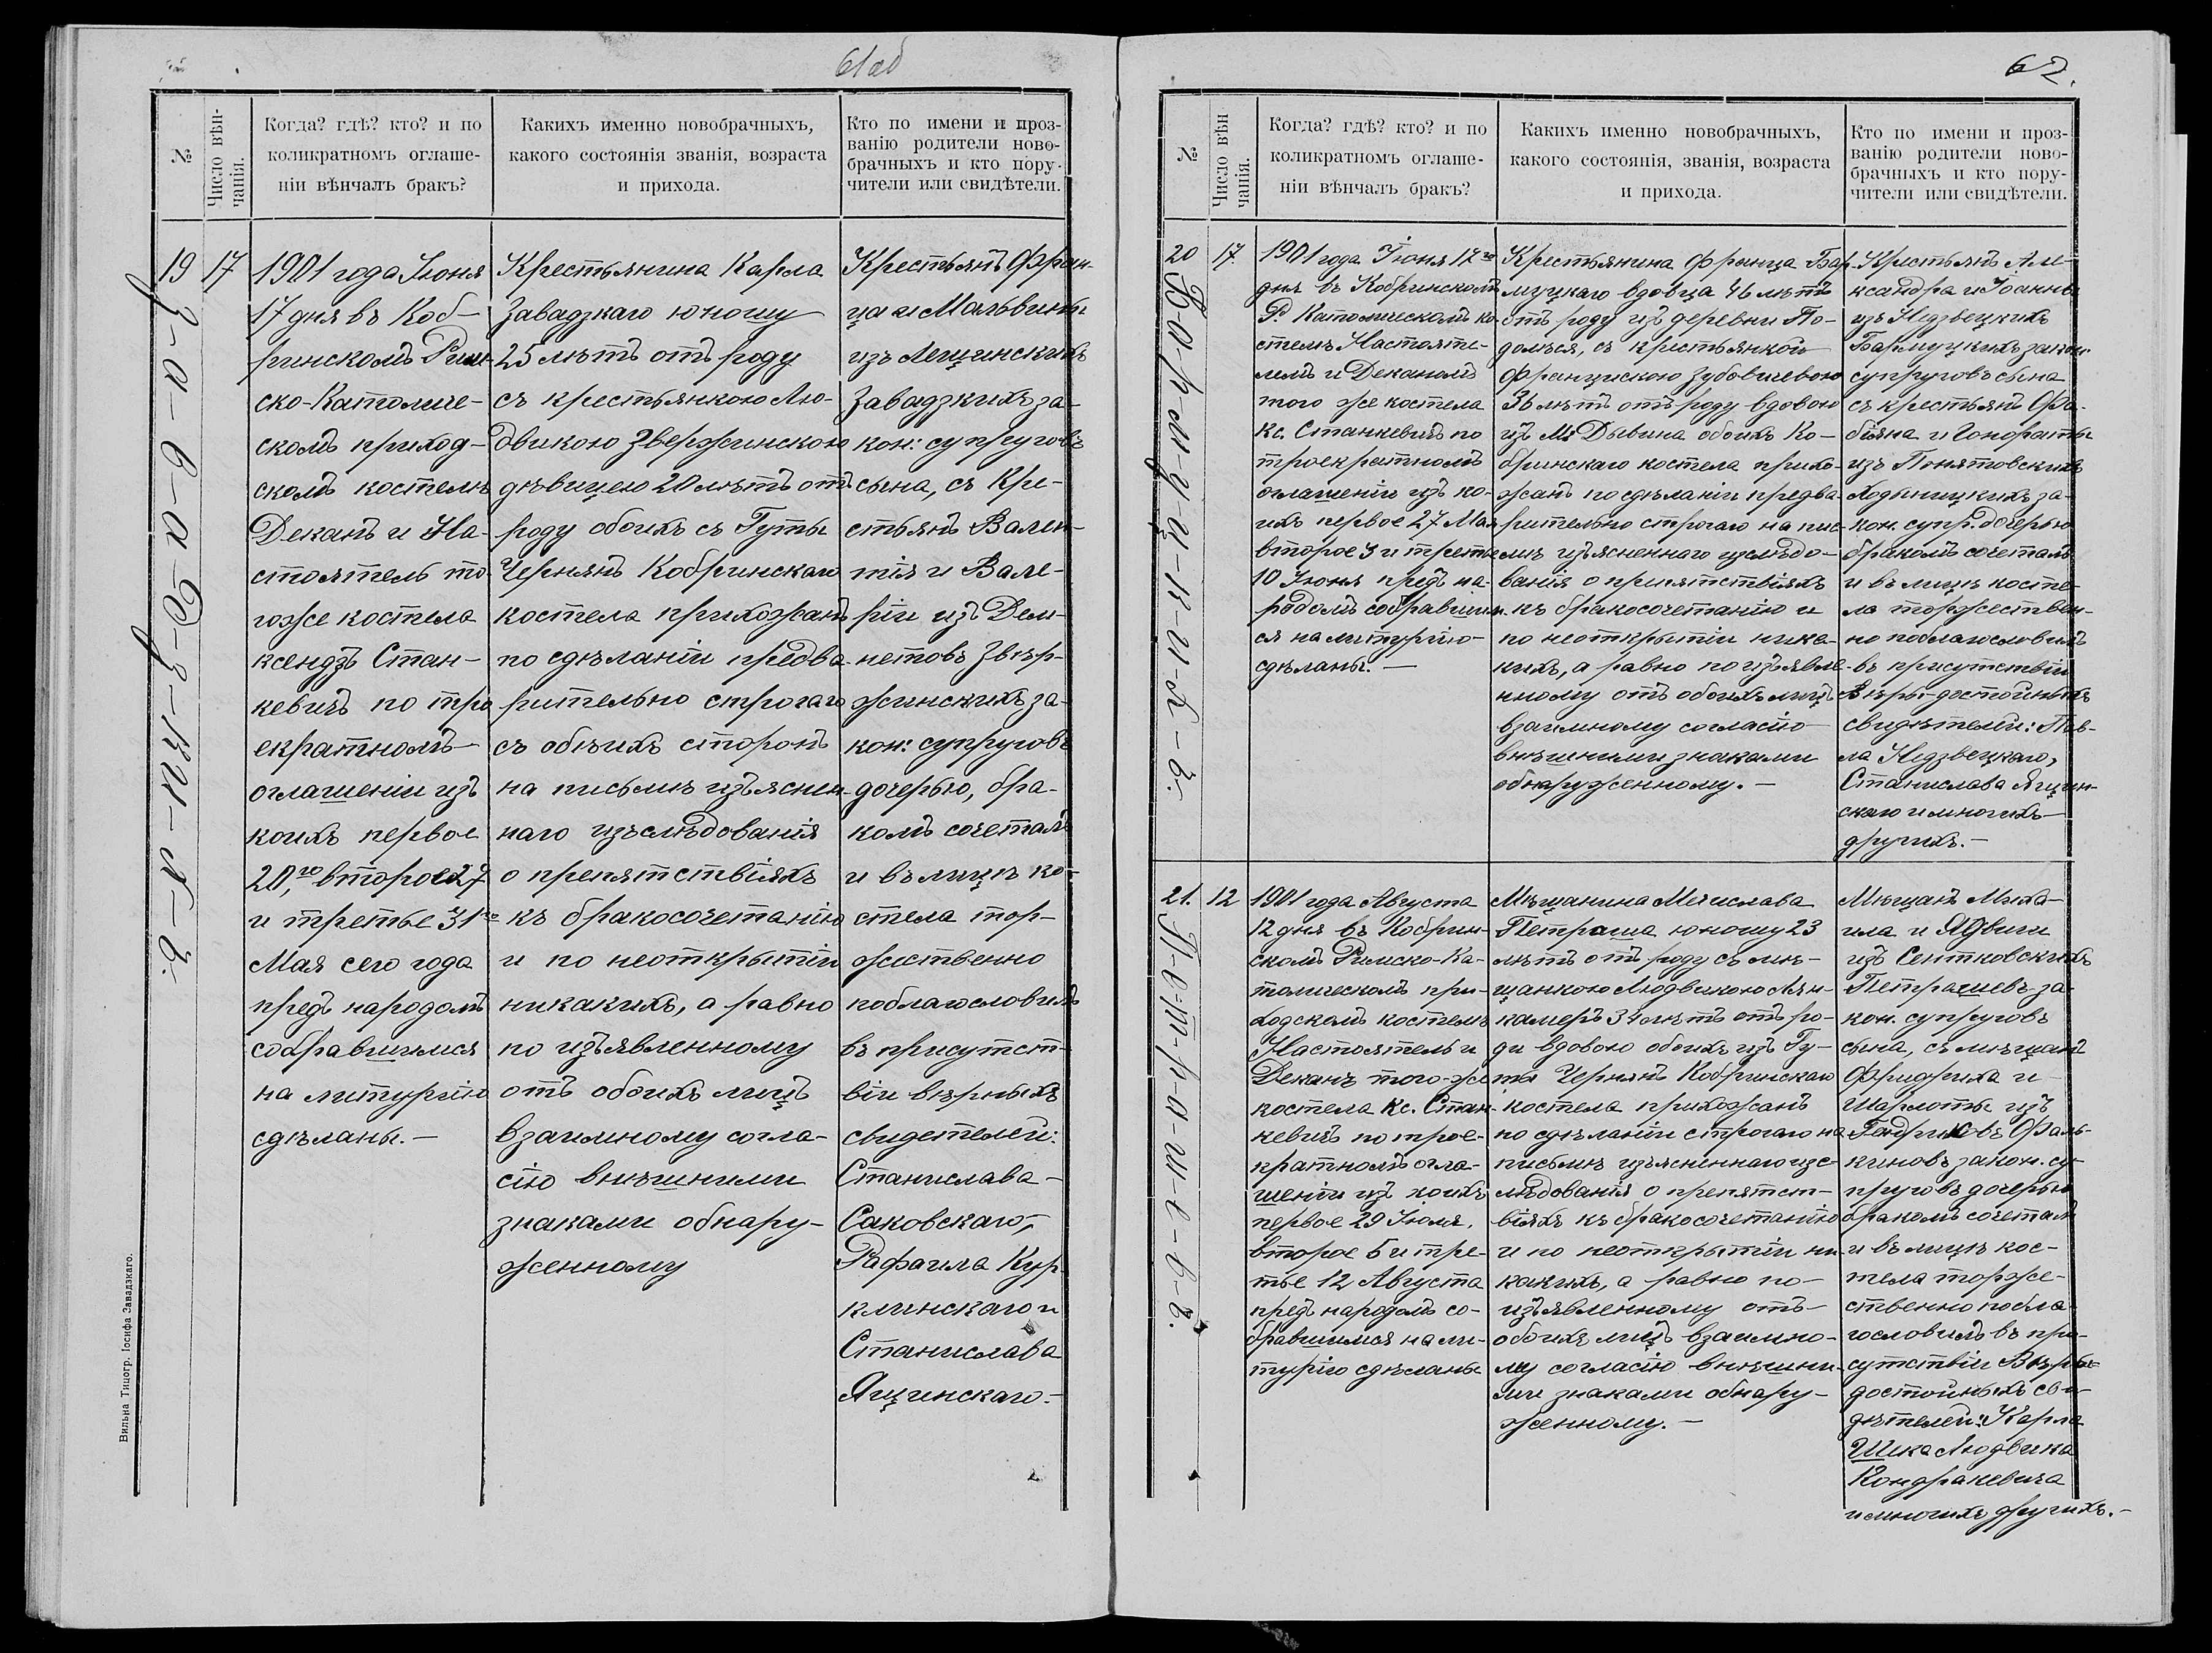 61об
№
Число вѣн-
чанія.
Когда? гдѣ? кто? и по
коликратномъ оглаше-
ніи вѣнчалъ бракъ?
Какихъ именно новобрачныхъ,
какого состоянія званія, возраста
и прихода.
Кто по имени и проз-
ванію родители ново-
брачныхъ и кто пору-
чители или свидѣтели.
19
17
З-а-в-а-д-з-к-и-й-
1901 года Іюня
17 дня въ Коб-
ринскомъ Рим-
ско-Католиче-
скомъ приход-
скомъ костелѣ
Деканъ и На-
стоятель то-
гоже костела
ксендзъ Стан-
кевичъ по тро
екратномъ
оглашеніи изъ
коихъ первое
20,го второе 27
и третье 31го
Мая сего года
предъ народомъ
собравшимся
на литургію
сдѣланы.-
Крестьянина Карла
Завадзкаго юношу
25 лѣтъ отъ роду
съ крестьянкою Лю-
двикою Звержинскою
дѣвицею 20 лѣтъ отъ
роду обоихъ съ Гуты
Чернянъ Кобринскаго
костела прихожанъ
по сдѣланіи предва-
рительно строгаго
съ обѣихъ сторонъ
на письмѣ изъяснен-
наго изслѣдованія
о препятствіяхъ
къ бракосочетанію
и по неоткрытіи
никакихъ, а равно
по изъявленному
отъ обоихъ лицъ
взаимному согла-
сію внѣшними
знаками обнару-
женному
Крестьянъ Фран-
ца и Мальвины
изъ Лещинскихъ
Завадзкихъ за-
кон: супруговъ
сына, съ Кре-
стьянъ Вален-
тія и Вале-
ріи изъ Дем-
нетовъ Звѣр-
жинскихъ за-
кон: супруговъ
дочерью, бра-
комъ сочеталъ
и въ лицѣ ко-
стела тор-
жественно
поблагословилъ
въ присутст-
віи вѣрныхъ
свидетелей:
Станислава-
Саковскаго,
Рафаила Кур-
клинскаго и
Станислава
Ящинскаго.-
Вильна Типогр. Іосифа Завадзкаго.
62.
№
Число вѣн
чанія.
Когда? гдѣ? кто? и по
коликратномъ оглаше-
ніи вѣнчалъ бракъ?
Какихъ именно новобрачныхъ,
какого состоянія, званія, возраста
и прихода.
Кто по имени и проз-
ванію родители ново-
брачныхъ и кто пору-
чители или свидѣтели.
20
17.
1901 года Іюня 17го
дня въ Кобринскомъ
Р. Католическомъ ко-
стелѣ Настояте-
лемъ и Деканомъ
того же костела
кс. Станкевичъ по
троекратномъ
оглашеніи изъ ко-
ихъ первое 27 Мая
второе 3 и третье
10 Іюня предъ на-
родомъ собравшим-
ся на литургію-
сдѣланы.-
Крестьянина Франца Бар-
муцкаго вдовца 46 лѣтъ
отъ роду изъ деревни По-
долѣся, съ крестьянкой
Францискою Зубовичевою
лѣтъ отъ роду вдовою
изъ М. Дывина обоихъ Ко-
бринскаго костела прихо-
жанъ по сдѣланіи предва-
рительно строгаго на пис-
мѣ изъясненнаго изслѣдо-
ванія о препятствіяхъ
къ бракосочетанію и
по неоткрытіи ника-
кихъ, а равно по изъявле-
нному отъ обоихъ лицъ
взаимному согласію
внѣшними знаками
обнаруженному.-
Крестьянъ Але-
ксандра и Іоанны
изъ Недзвецкихъ
Бармуцкихъ закон.
супруговъ сына
съ крестьянъ Фа-
біяна и Гонораты
изъ Понятовскихъ
Ходыницкихъ за-
кон. супр. дочерью
бракомъ сочеталъ
и въ лицѣ косте-
ла торжествен-
но поблагословилъ
въ присутствіи
Вѣры-достойныхъ
свидѣтелей: Пав-
ла Недзвецкаго,
Станислава Ящин-
скаго и многихъ
другихъ.-
21.
12
П-е-т-р-а-ш-е-в-ъ.
1901 года Августа
12 дня въ Кобрин-
скомъ Римско-Ка-
толическомъ при-
ходскомъ костелѣ
Настоятель и
Деканъ того-же
костела кс. Стан-
кевичъ по трое-
кратномъ огла-
шеніи изъ коихъ
первое 29 Іюля,
второе 5 и тре-
тье 12 Августа
предъ народомъ со-
бравшимся на ли-
тургію сдѣланы
Мѣщанина Мечислава
Петраша юношу 23
лѣтъ отъ роду съ мѣ-
щанкою Людвикою Лян-
камеръ 34 лѣтъ отъ ро-
ди вдовою обоихъ изъ Гу-
ты Чернянъ Кобринскаго
костела прихожанъ
по сдѣланіи строгаго на
письмѣ изъясненнаго изс-
лѣдованія о препятст-
віяхъ къ бракосочетанію
и по неоткрытіи ни-
какихъ, а равно по-
изъявленному отъ-
обоихъ лицъ взаимно-
му согласію внѣшни-
ми знаками обнару-
женному.-
Мѣщанъ Миха-
ила и Ядвиги
изъ Сентковскихъ
Петрашевъ за-
кон. супруговъ
сына, съ мѣщанъ
Фридриха и
Шарлоты изъ
Гендриковъ Фаль-
киновъ закон. су-
пруговъ дочерью
бракомъ сочеталъ
и въ лицѣ кос-
тела торже-
ственно побла-
гословилъ въ при-
сутствіи Вѣры-
достойныхъ сви-
дѣтелей: Карла
Шика Людвика
Кондракевича
и многихъ другихъ.-